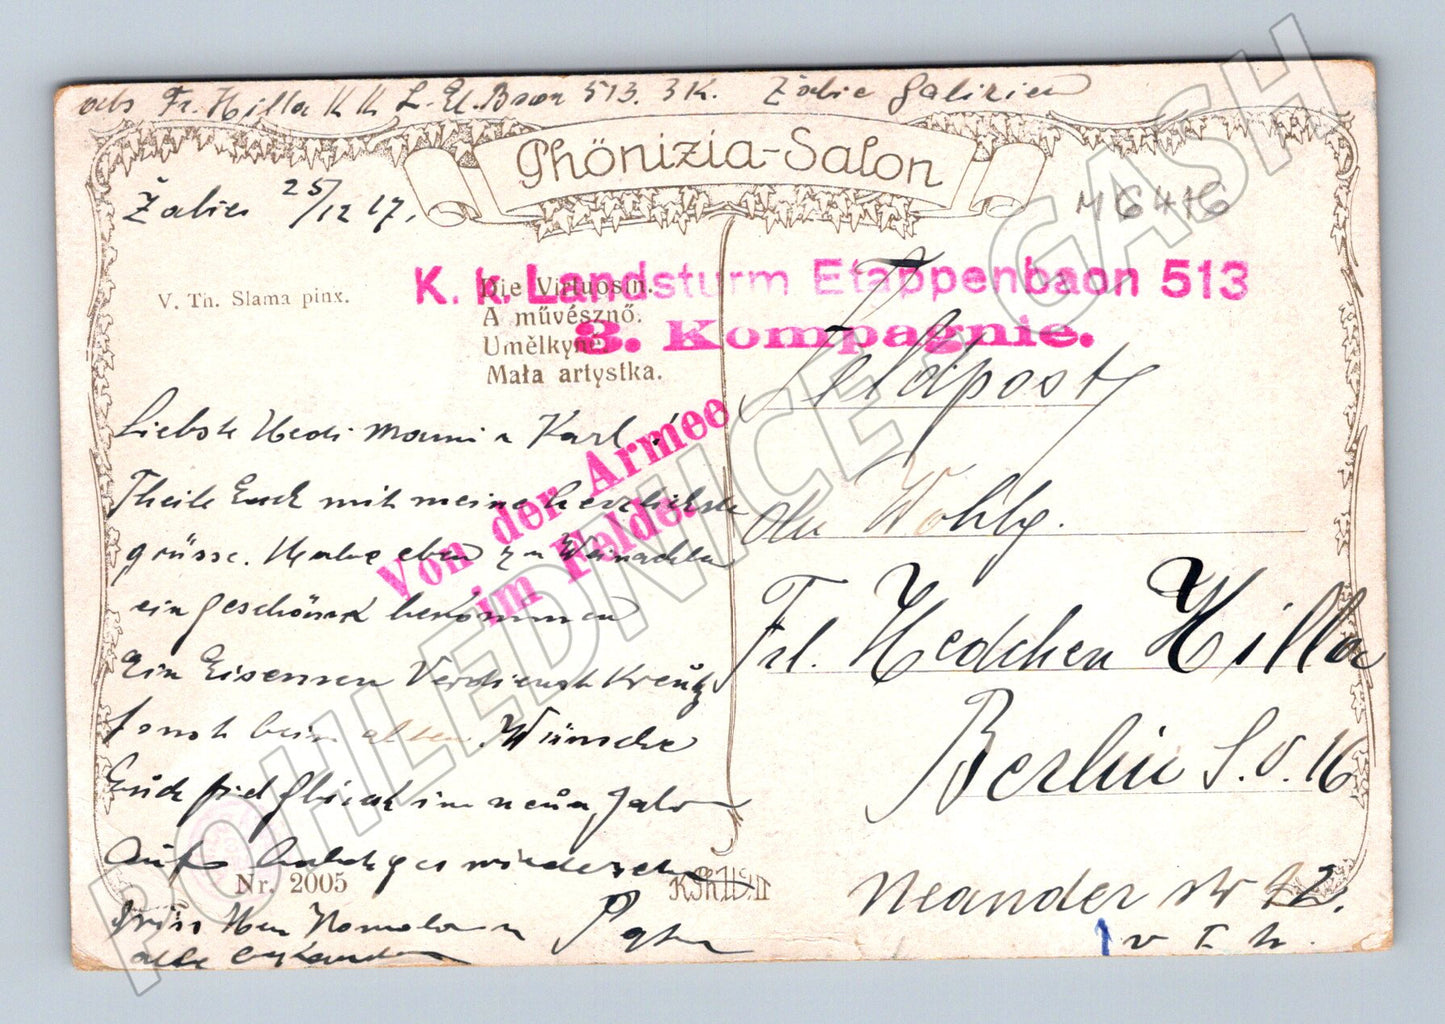 abs Fr. Hilla K K L. Et. Baon 513. 3 K. Žabie Galizien
Phönizia-Salon
Žabie 25/12 17.
M6416
K. k. Landsturm Etappenbaon 513
3. Kompagnie.
V. Th. Slama pinx.
Die Virtuosin.
A művésznő.
Umělkyně.
Mała artystka.
Von der Armee
im Felde.
Liebste Hedi Mami u Karl!
Theile Euch mit meine herzlichste
grüsse. Habe eben zu Weinachten
ein geschönk bekommen
Ein Eisernen Verdienst Kreutz
sonst beim alten. Wünsche
Euch fiel Glück im neun Jahr
Auf baldiges wiedersehen
Nr. 2005
Gruss Herr u
alle bekannten
Feldpost
An Wohlg.
Frl. Hedchen Hilla
Berlin S.O. 16
Neander str 42.
v I h.
POHLEDNICE GASH